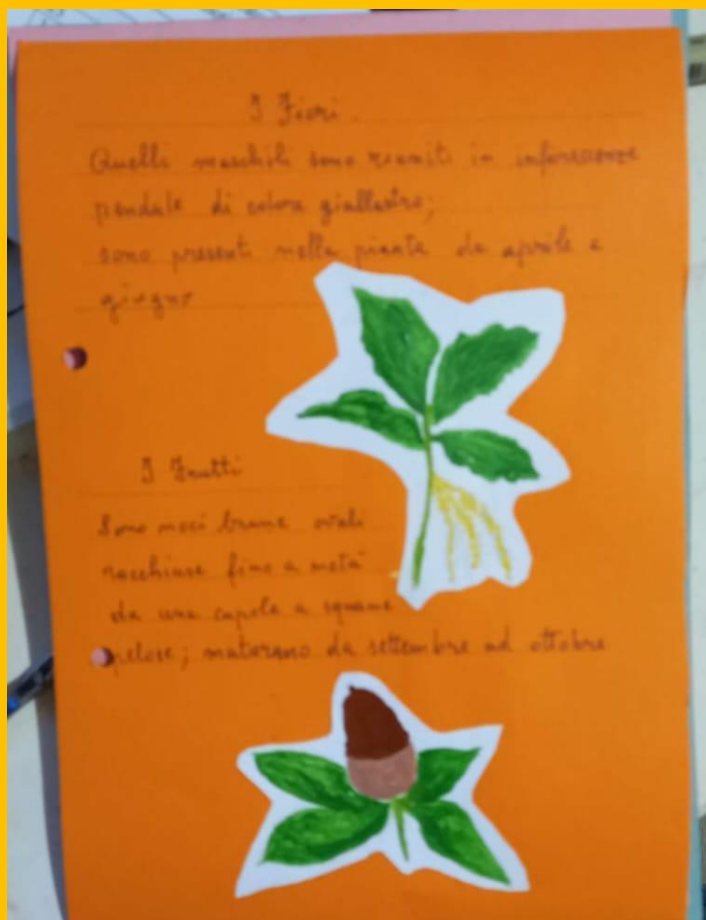 I Fiori.
Quelli maschili sono riuniti in inforescenze
pendule di colore giallastro;
sono presenti nelle piante da aprile a
giugno
I Frutti
Sono noci brune ovali
racchiuse fino a metà
da una cupola a squame
pelose; maturano da settembre ad ottobre